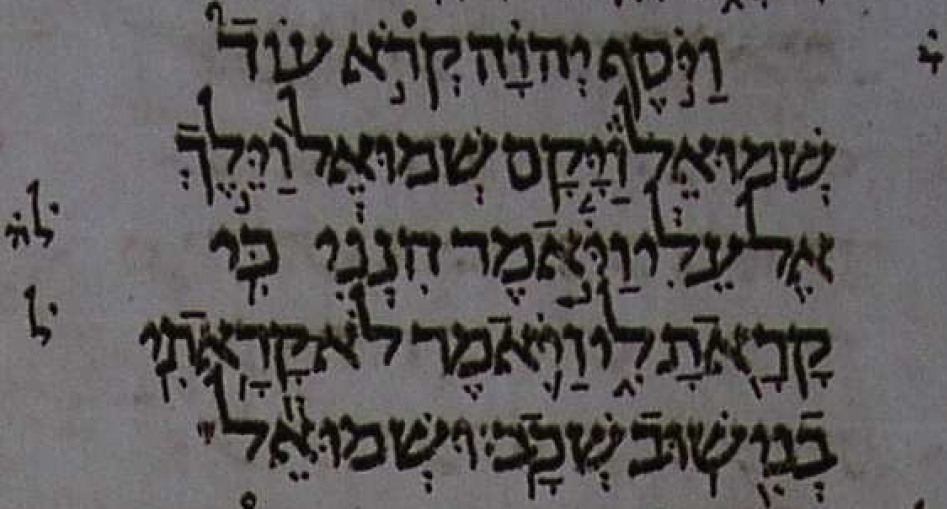 וַיֹּסֶף יְהוָה קְרֹא עוֹד
שְׁמוּאֵל וַיָּקָם שְׁמוּאֵל וַיֵּלֶךְ
אֶל עֵלִי וַיֹּאמֶר הִנְנִי כִּי
קָרָאתָ לִי וַיֹּאמֶר לֹא קָרָאתִי
בְנִי שׁוּב שְׁכָב׃ וּשְׁמוּאֵל